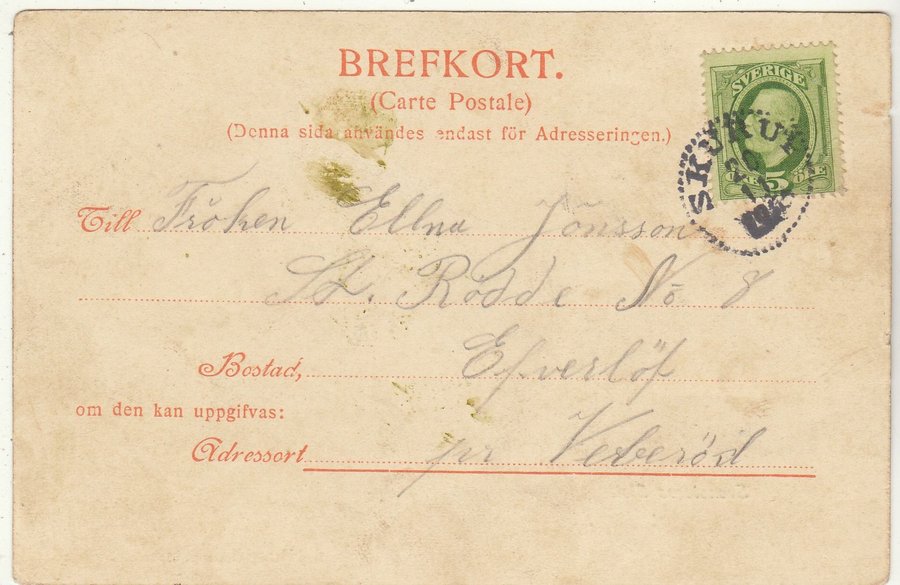 BREFKORT.
(Carte Postale)
(Denna sida användes endast för Adresseringen.)
SVERIGE
5
ÖRE
SKURUP
Till Fröken Ellna Jönsson
St. Rödde No 8
Bostad, Efverlöf
om den kan uppgifvas:
Adressort pr Veberöd